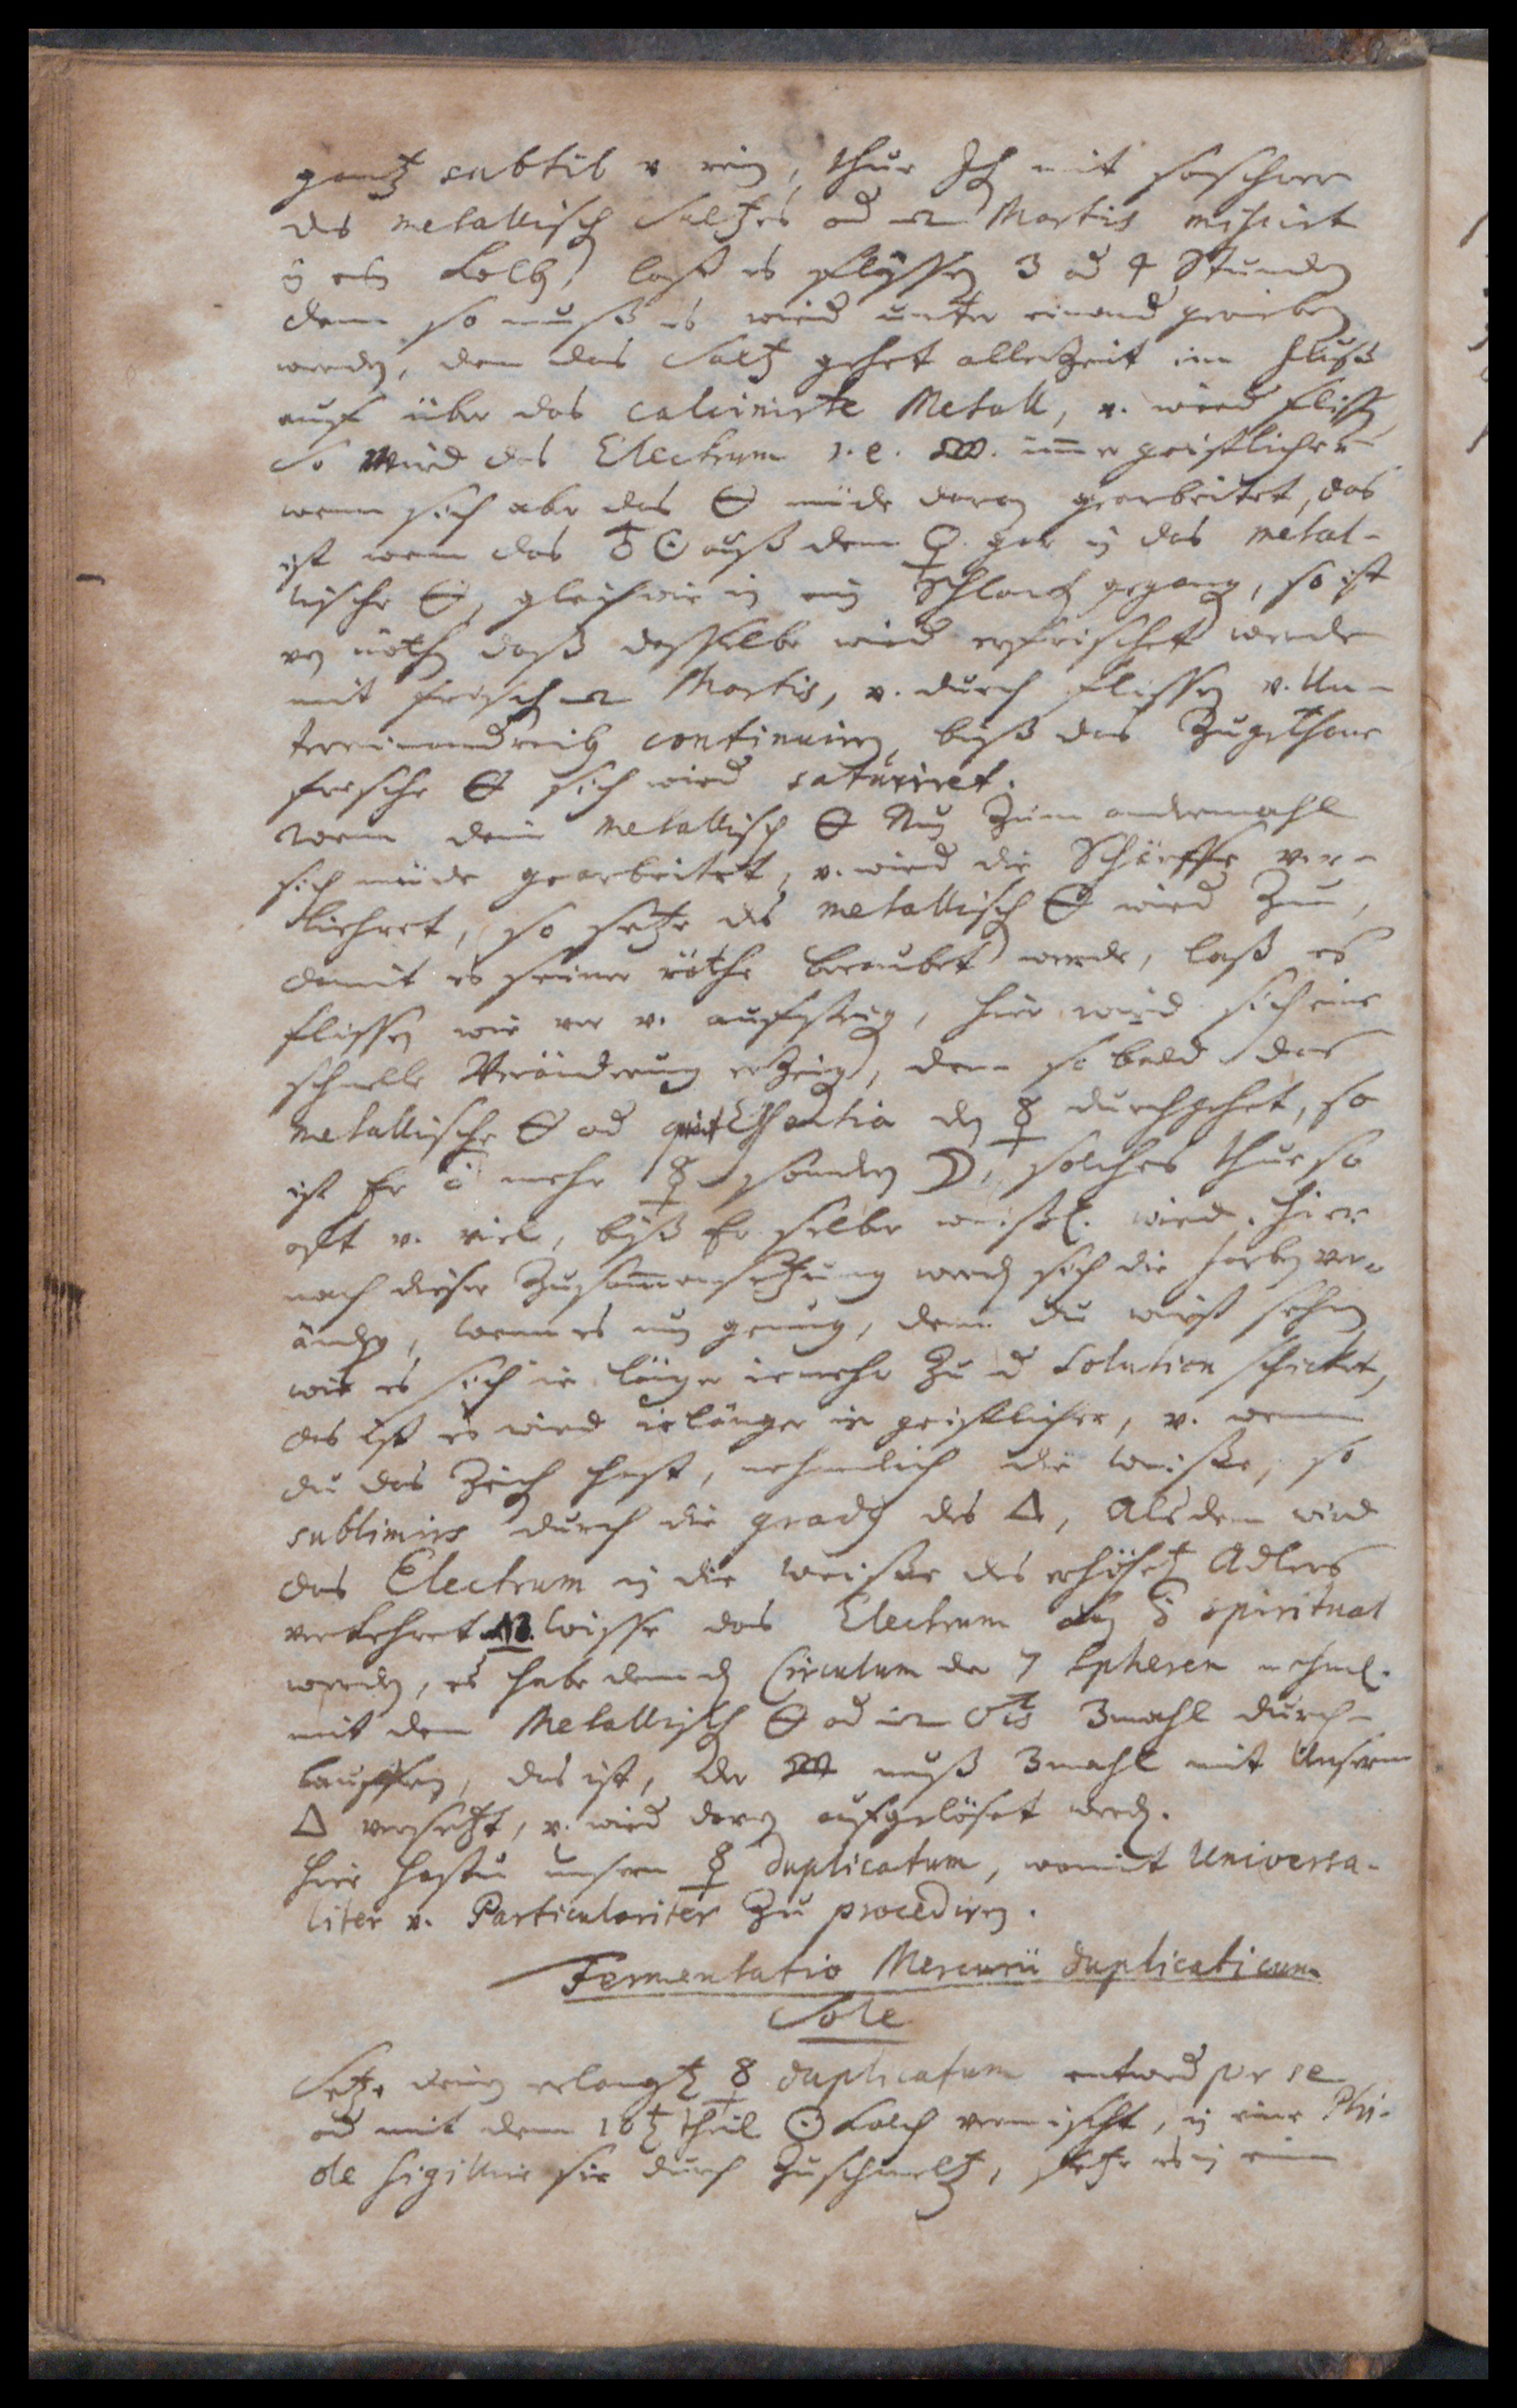 gantz subtil v. rein, thue Ihn mit so schwer
des metallisch Saltzes od Martis mischirt
in ein Kolb, laß es flissen 3 od 4 Stunden
dann so muß es wied unter einand gerieben
werden, den das Saltz gehet allezeit im Fluß
auf über das calcinirte Metall, v. wird fliss
So wird das Electrum i.e. immer geistlicher
wenn sich aber das 🜔 müde daran gearbeitet, das
ist wenn das ♁ ☉ auß dem ♀ gar in das metal-
lische 🜔, gleichwie in ein Schlack gegang, so ist
von nöthen daß dasselbe wied erfrischet werde
mit frisch Martis, v. durch flissen v. Un-
tereinandreib continuiren, biß das Zugethane
frische 🜔 sich wied saturiret.
wenn dein metallisch 🜔 Nun Zum andermahl
sich müde gearbeitet, v. wied die Schärffe ver-
liehret, so setze des metallisch 🜔 wied Zu,
damit es seiner röthe beraubet werde, laß es
flissen wie vor v. aufsteig, hier wird sich eine
schnelle Veränderung erzeig, denn so bald das
metallische 🜔 od quint Essentia den ☿ durchgehet, so
ist Er mehr ☿ sondern ☽, solches thue so
oft v. viel, biß Er selber weißl. wird. hier
nach dieser Zusammensetzung werd sich die farben ver-
ändern, wenn es nun genug, denn du wirst sehen
wie es sich ie länger ie mehr Zu d Solution schicket,
das ist es wird ie länger ie geistlicher, v. wenn
du das Zeich hast, nehmlich die weisse, so
sublimire durch die grade des △, Alsdenn wird
das Electrum in die weisse des erhöht Adlers
verkehret NB. Wisse das Electrum kan spiritual
werden, es habe denn den Circulum der 7 Spheren nehml.
mit dem Metallisch 🜔 od ♂tis 3mahl durch-
lauffen, das ist, der muß 3mahl mit Unserm
△ versetzt, v. wied darin aufgelöset werd.
Hier hastu unsern ☿ duplicatum, womit Universa-
liter v. Particulariter Zu procediren.
Fermentatio Mercurii duplicati cum
Sole
Setze dein erlangt ☿ duplicatum entwed per se
od mit dem 10t theil ☉ Kalch vermischt, in eine Phi-
ole sigillire sie durch Zuschmeltz, setze es in ein